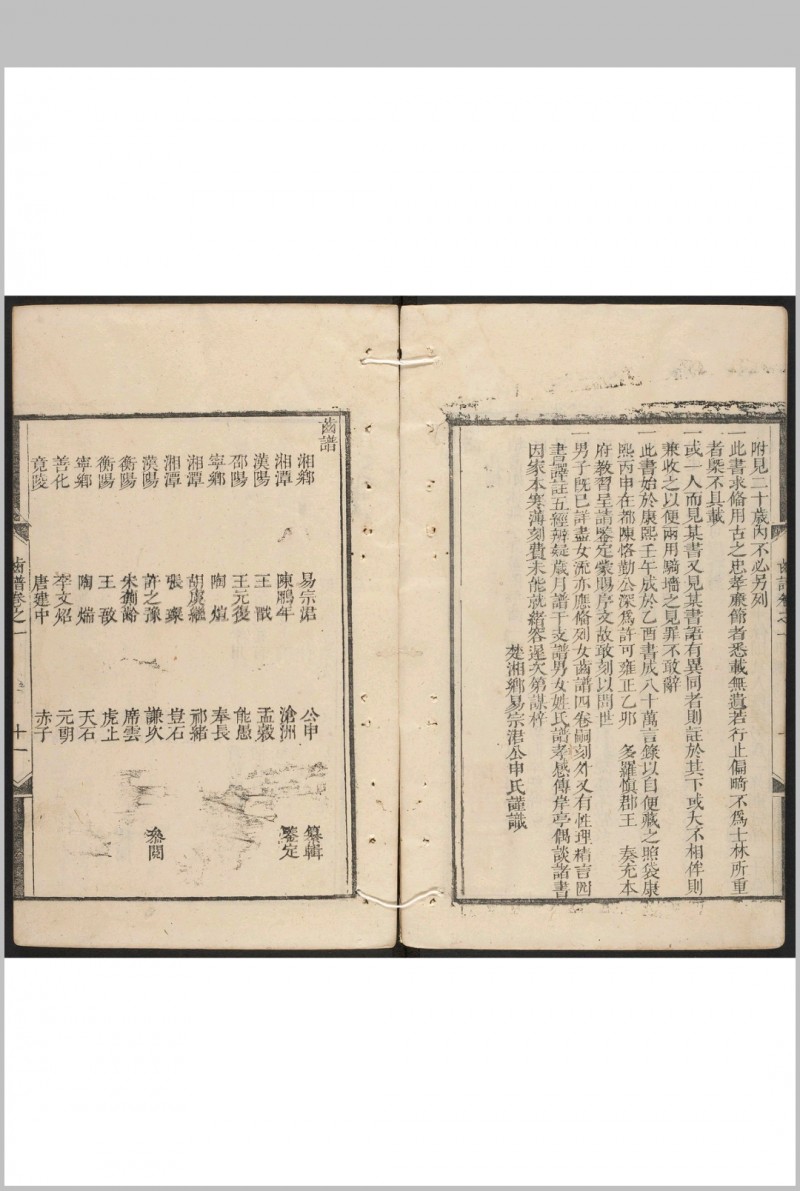 附見二十歲內不必另列
一此書求俻用古之忠孝亷節者悉載無遺若行止偏畸不爲士林所重
者槩不具載
一或一人而見某書又見某書語有異同者則註於其下或大不相侔則
兼收之以便兩用騎墻之見罪不敢辭
一此書始於康熙壬午成於乙酉書成八十萬言錄以自便藏之照袋康
熙丙申在都陳恪勤公深爲許可雍正乙夘 多羅慎郡王 奏充本
府教習呈請鑒定蒙賜序文故敢刻以問世
一男子旣已詳盡女流亦應俻列女齒譜四卷嗣刻外又有性理精言四
書繹註五經辨疑歲月譜干支譜男女姓氏譜孝感傳犀亭偶談諸書
因家本寒薄刻費未能就緒容遲次第謀梓
楚湘鄉易宗涒公申氏謹識
齒譜卷之一
齒譜
湘鄉 易宗涒 公申 纂輯
湘潭 陳鵬年 滄洲 鑒定
漢陽 王戩 孟穀
邵陽 王元復 能愚
寧鄉 陶煊 奉長
湘潭 胡虞繼 祁緒
湘潭 張璨 豈石
漢陽 許之豫 謙次 叅閱
衡陽 朱 齡 席雲
衡陽 王敔 虎止
寧鄉 陶煓 天石
善化 李文炤 元朗
竟陵 唐建中 赤子
齒譜卷之一
十一